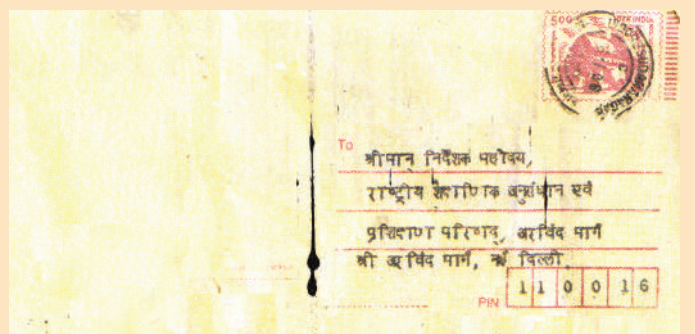 500 INDIA
To
श्रीमान् निर्देशक महोदय,
राष्ट्रीय शैक्षणिक अनुसंधान एवं
प्रशिक्षण परिषद्, अरविंद मार्ग
श्री अरविंद मार्ग, नई दिल्ली
PIN 110016